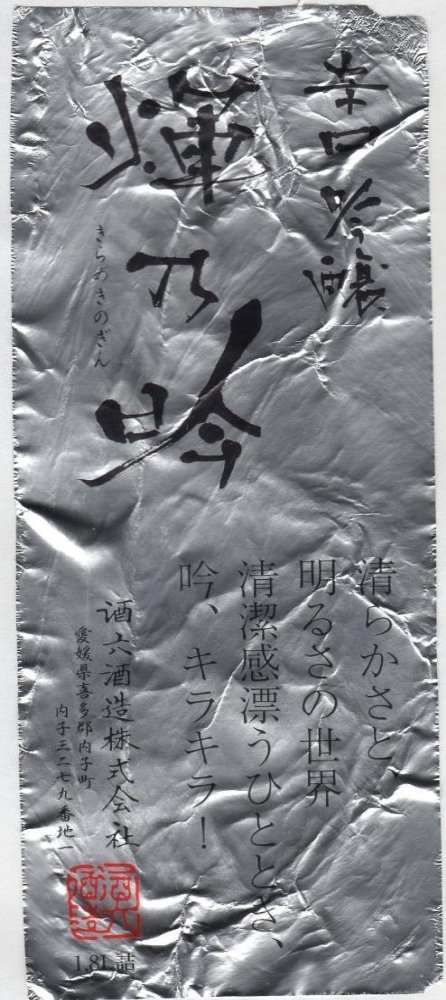 辛口吟醸
輝乃吟
きらめきのぎん
清らかさと、
明るさの世界
清潔感漂うひととき、
吟、キラキラ!
酒六酒造株式会社
愛媛県喜多郡内子町
内子三二七九番地一
1.8L詰